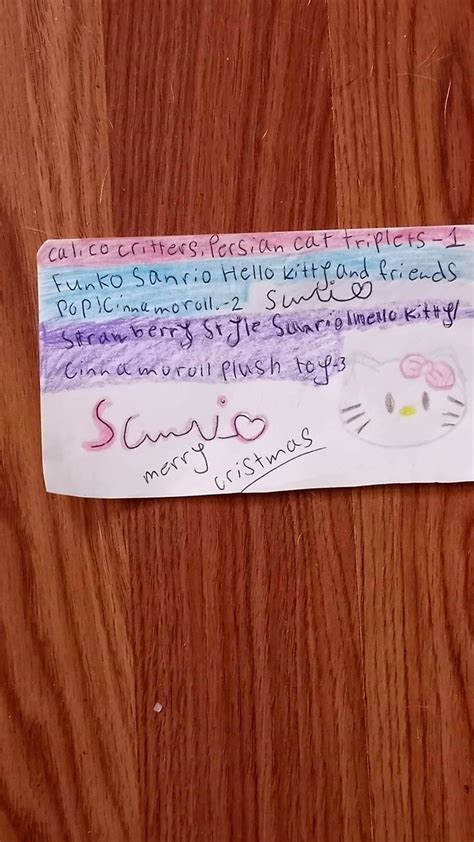 calico critters, Persian cat triplets-1
Funko Sanrio Hello Kitty and friends
POP! Cinnamoroll.-2 Sanrio
Strawberry Style Sanrio Hello Kitty/
Cinnamoroll plush toy-3
Sanrio
merry
cristmas